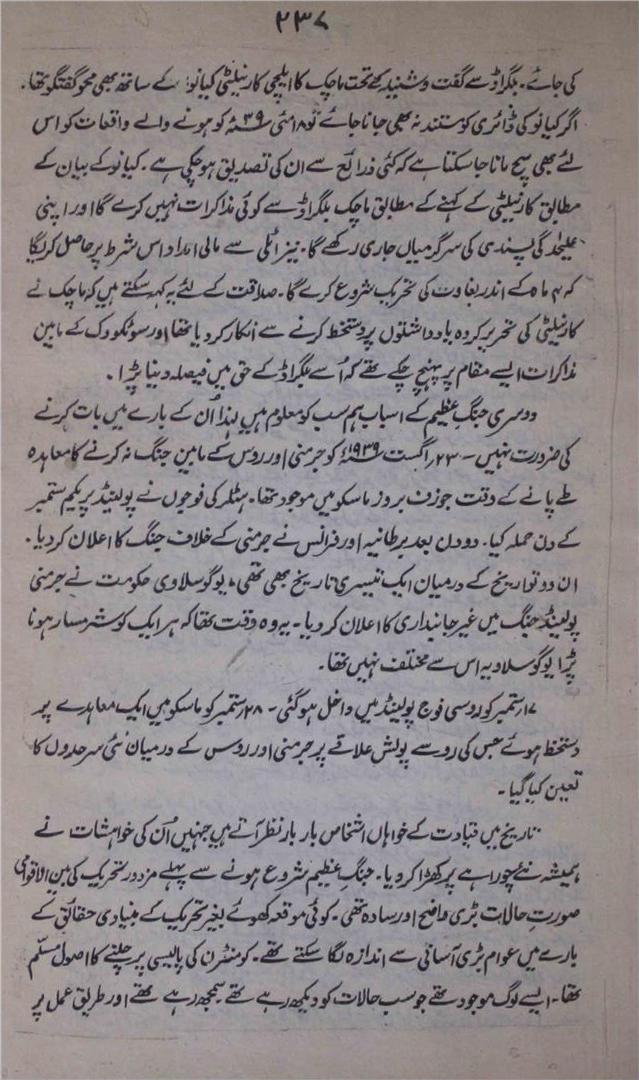 ۲۳۷
کی جائے۔ بلگراڈ سے گفت و شنید کے تحت ماچک کا ایلچی کارنیلٹی کیانو کے ساتھ بھی محو گفتگو تھا۔
اگر کیانو کی ڈائری کو مستند نہ بھی جانا جائے تو ۱۸ مئی ۱۹۳۹ء کو ہونے والے واقعات کو اس
لئے بھی سچ مانا جا سکتا ہے کہ کئی ذرائع سے ان کی تصدیق ہو چکی ہے۔ کیانو کے بیان کے
مطابق کارنیلٹی کے کہنے کے مطابق ماچک بلگراڈ سے کوئی مذاکرات نہیں کرے گا اور اپنی
علیحدگی پسندی کی سرگرمیاں جاری رکھے گا۔ نیز اٹلی سے مالی امداد اس شرط پر حاصل کریگا
کہ ۶ ماہ کے اندر بغاوت کی تحریک شروع کرے گا۔ صداقت کے لئے یہ کہہ سکتے ہیں کہ ماچک نے
کارنیلٹی کی تحریر کردہ یادداشتوں پر دستخط کرنے سے انکار کر دیا تھا اور سوتکووک کے مابین
مذاکرات ایسے مقام پر پہنچ چکے تھے کہ اُسے بلگراڈ کے حق میں فیصلہ دینا پڑا۔
دوسری جنگِ عظیم کے اسباب ہم سب کو معلوم ہیں لہٰذا اُن کے بارے میں بات کرنے
کی ضرورت نہیں۔ ۲۳؍ اگست ۱۹۳۹ء کو جرمنی اور روس کے مابین جنگ نہ کرنے کا معاہدہ
طے پانے کے وقت جوزف بروز ماسکو میں موجود تھا۔ ہٹلر کی فوجوں نے پولینڈ پر یکم ستمبر
کے دن حملہ کیا۔ دو دن بعد برطانیہ اور فرانس نے جرمنی کے خلاف جنگ کا اعلان کر دیا۔
ان دو تواریخ کے درمیان ایک تیسری تاریخ بھی تھی، یوگوسلاوی حکومت نے جرمنی
پولینڈ جنگ میں غیر جانبداری کا اعلان کر دیا۔ یہ وہ وقت تھا کہ ہر ایک کو شرمسار ہونا
پڑا یوگوسلاویہ اس سے مختلف نہیں تھا۔
۱۷؍ ستمبر کو روسی فوج پولینڈ میں داخل ہو گئی۔ ۲۸؍ ستمبر کو ماسکو میں ایک معاہدے پر
دستخط ہوئے جس کی رو سے پولش علاقے پر جرمنی اور روس کے درمیان نئی سرحدوں کا
تعین کیا گیا۔
تاریخ میں قیادت کے خواہاں اشخاص بار بار نظر آتے ہیں جنہیں اُن کی خواہشات نے
ہمیشہ نئے چوراہے پر کھڑا کر دیا۔ جنگِ عظیم شروع ہونے سے پہلے مزدور تحریک کی بین الاقوامی
صورتِ حالات بڑی واضح اور سادہ تھی۔ کوئی موقعہ کھوئے بغیر تحریک کے بنیادی حقائق کے
بارے میں عوام بڑی آسانی سے اندازہ لگا سکتے تھے۔ کومنٹرن کی پالیسی پر چلنے کا اصول مسلّم
تھا۔ ایسے لوگ موجود تھے جو سب حالات کو دیکھ رہے تھے سمجھ رہے تھے اور طریق عمل پر